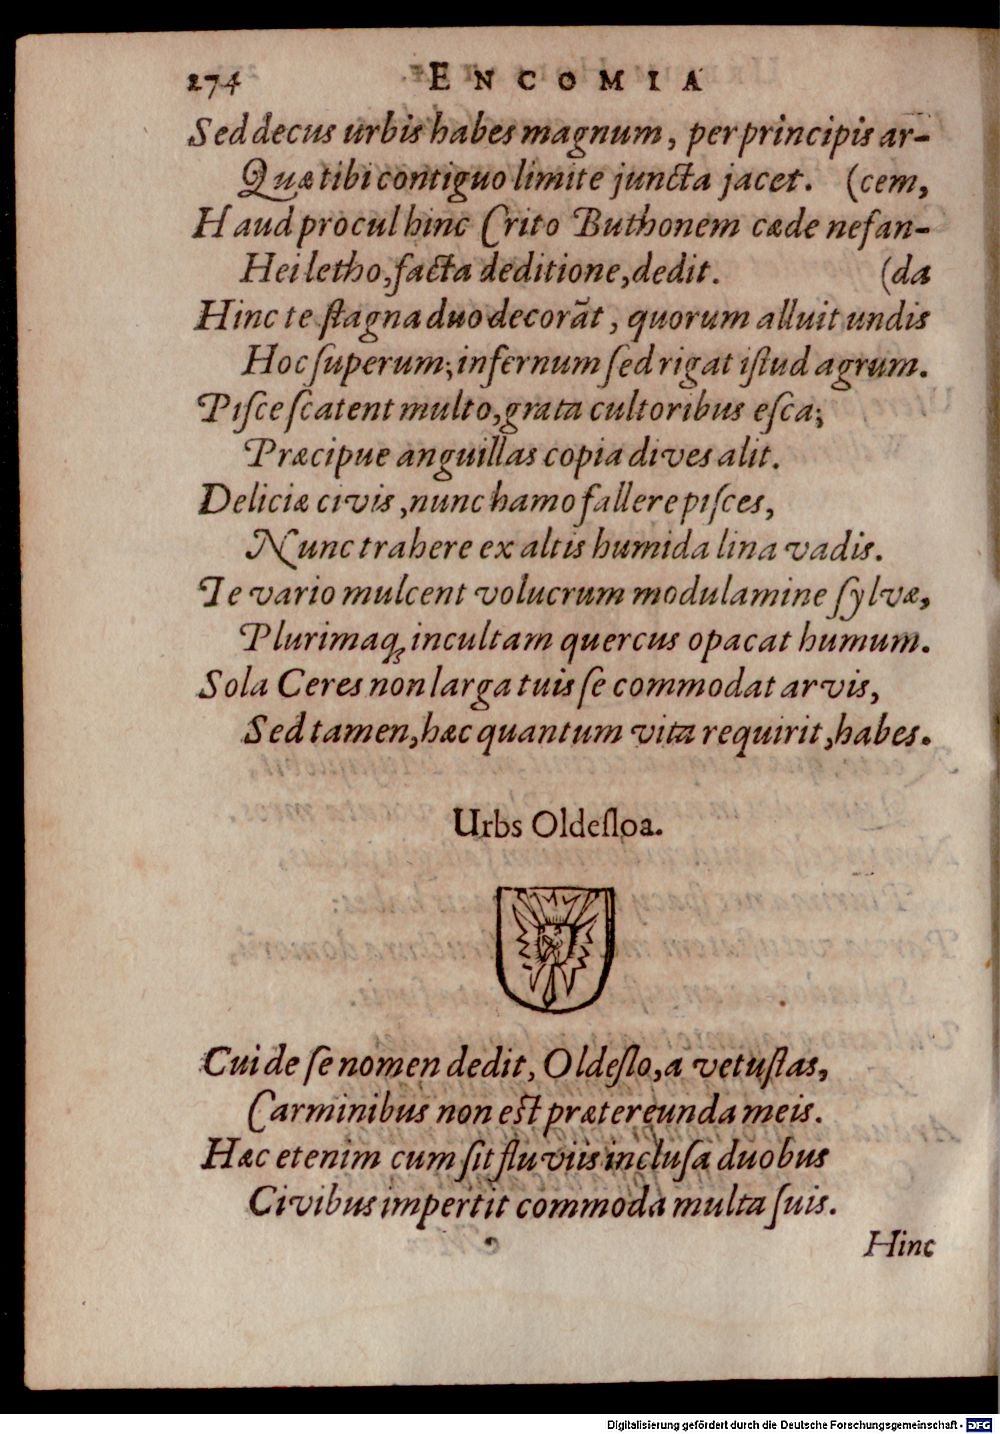 274 ENCOMIA
Sed decus urbis habes magnum, per principis ar-
Quæ tibi contiguo limite juncta jacet. (cem,
Haud procul hinc Crito Buthonem cæde nefan-
Hei letho, facta deditione, dedit. (da
Hinc te ſtagna duo decorāt, quorum alluit undis
Hoc ſuperum; infernum ſed rigat iſtud agrum.
Piſce ſcatent multo, grata cultoribus eſca;
Præcipue anguillas copia dives alit.
Deliciæ civis, nunc hamo fallere piſces,
Nunc trahere ex altis humida lina vadis.
Te vario mulcent volucrum modulamine ſylvæ,
Plurimaq; incultam quercus opacat humum.
Sola Ceres non larga tuis ſe commodat arvis,
Sed tamen, hæc quantum vita requirit, habes.
Urbs Oldeſloa.
Cui de ſe nomen dedit, Oldeſlo, a vetuſtas,
Carminibus non est prætereunda meis.
Hæc etenim cum ſit fluviis incluſa duobus
Civibus impertit commoda multa ſuis.
Hinc
Digitalisierung gefördert durch die Deutsche Forschungsgemeinschaft - DFG